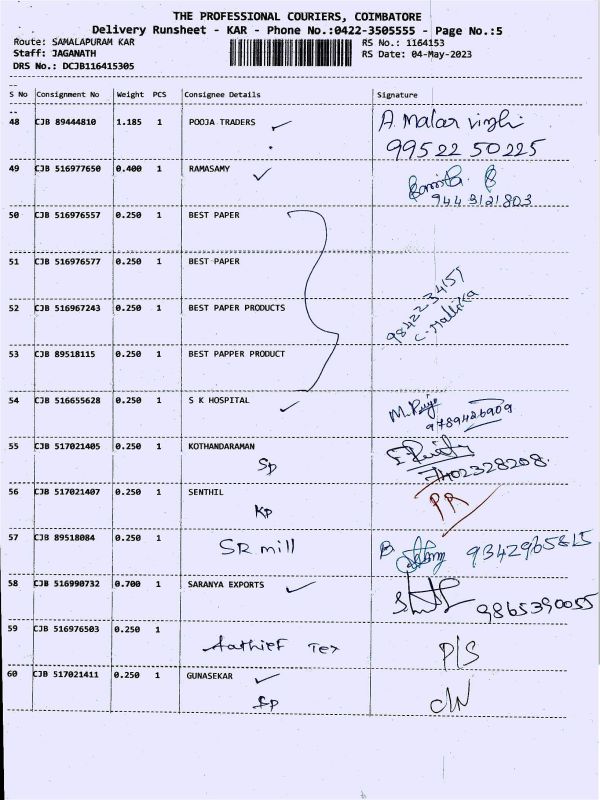 THE PROFESSIONAL COURIERS, COIMBATORE
Delivery Runsheet - KAR - Phone No.:0422-3505555 - Page No.:5
Route: SAMALAPURAM KAR RS No.: 1164153
Staff: JAGANATH RS Date: 04-May-2023
DRS No.: DCJB116415305
S No Consignment No Weight PCS Consignee Details Signature
48 CJB 89444810 1.185 1 POOJA TRADERS A. Malar vizhi
99522 50225
49 CJB 516977650 0.400 1 RAMASAMY
9443121803
50 CJB 516976557 0.250 1 BEST PAPER
51 CJB 516976577 0.250 1 BEST PAPER
98422-34157
C. Mallika
52 CJB 516967243 0.250 1 BEST PAPER PRODUCTS
53 CJB 89518115 0.250 1 BEST PAPPER PRODUCT
54 CJB 516655628 0.250 1 S K HOSPITAL M. Priya
9789426909
55 CJB 517021405 0.250 1 KOTHANDARAMAN
Sp 7402328208
56 CJB 517021407 0.250 1 SENTHIL PR
Kp
57 CJB 89518084 0.250 1 SR mill 9342965815
58 CJB 516990732 0.700 1 SARANYA EXPORTS 9865390055
59 CJB 516976503 0.250 1
Aathief Tex P/S
60 CJB 517021411 0.250 1 GUNASEKAR
Sp